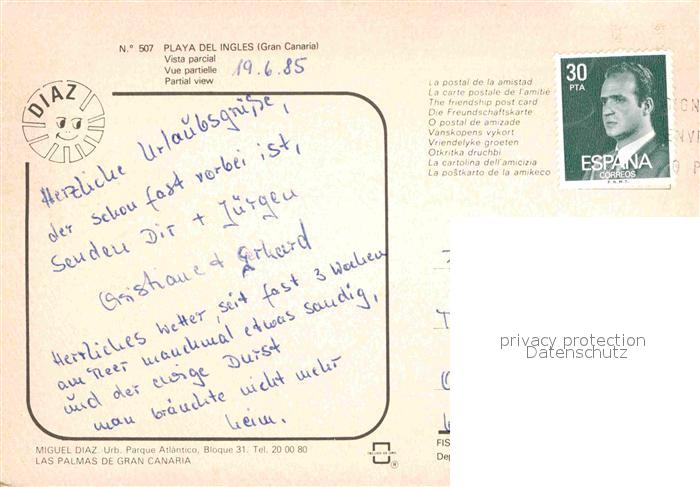 N.º 507 PLAYA DEL INGLES (Gran Canaria)
Vista parcial
Vue partielle
Partial view
19.6.85
DIAZ
La postal de la amistad
La carte postale de l'amitié
The friendship post card
Die Freundschaftskarte
O postal de amizade
Vanskopens vykort
Vriendelyke groeten
Otkritka druchbi
La cartolina dell'amicizia
La poŝtkarto de la amikeco
30
PTA
ESPAÑA
CORREOS
F.N.M.T.
Herzliche Urlaubsgrüße,
der schon fast vorbei ist,
senden Dir + Jürgen
Christiane + Gerhard
Herrliches Wetter, seit fast 3 Wochen
am Meer manchmal etwas sandig,
und der ewige Durst
man bräuchte nicht mehr
heim.
privacy protection
Datenschutz
MIGUEL DIAZ. Urb. Parque Atlántico, Bloque 31. Tel. 20 00 80
LAS PALMAS DE GRAN CANARIA
FIS
Dep